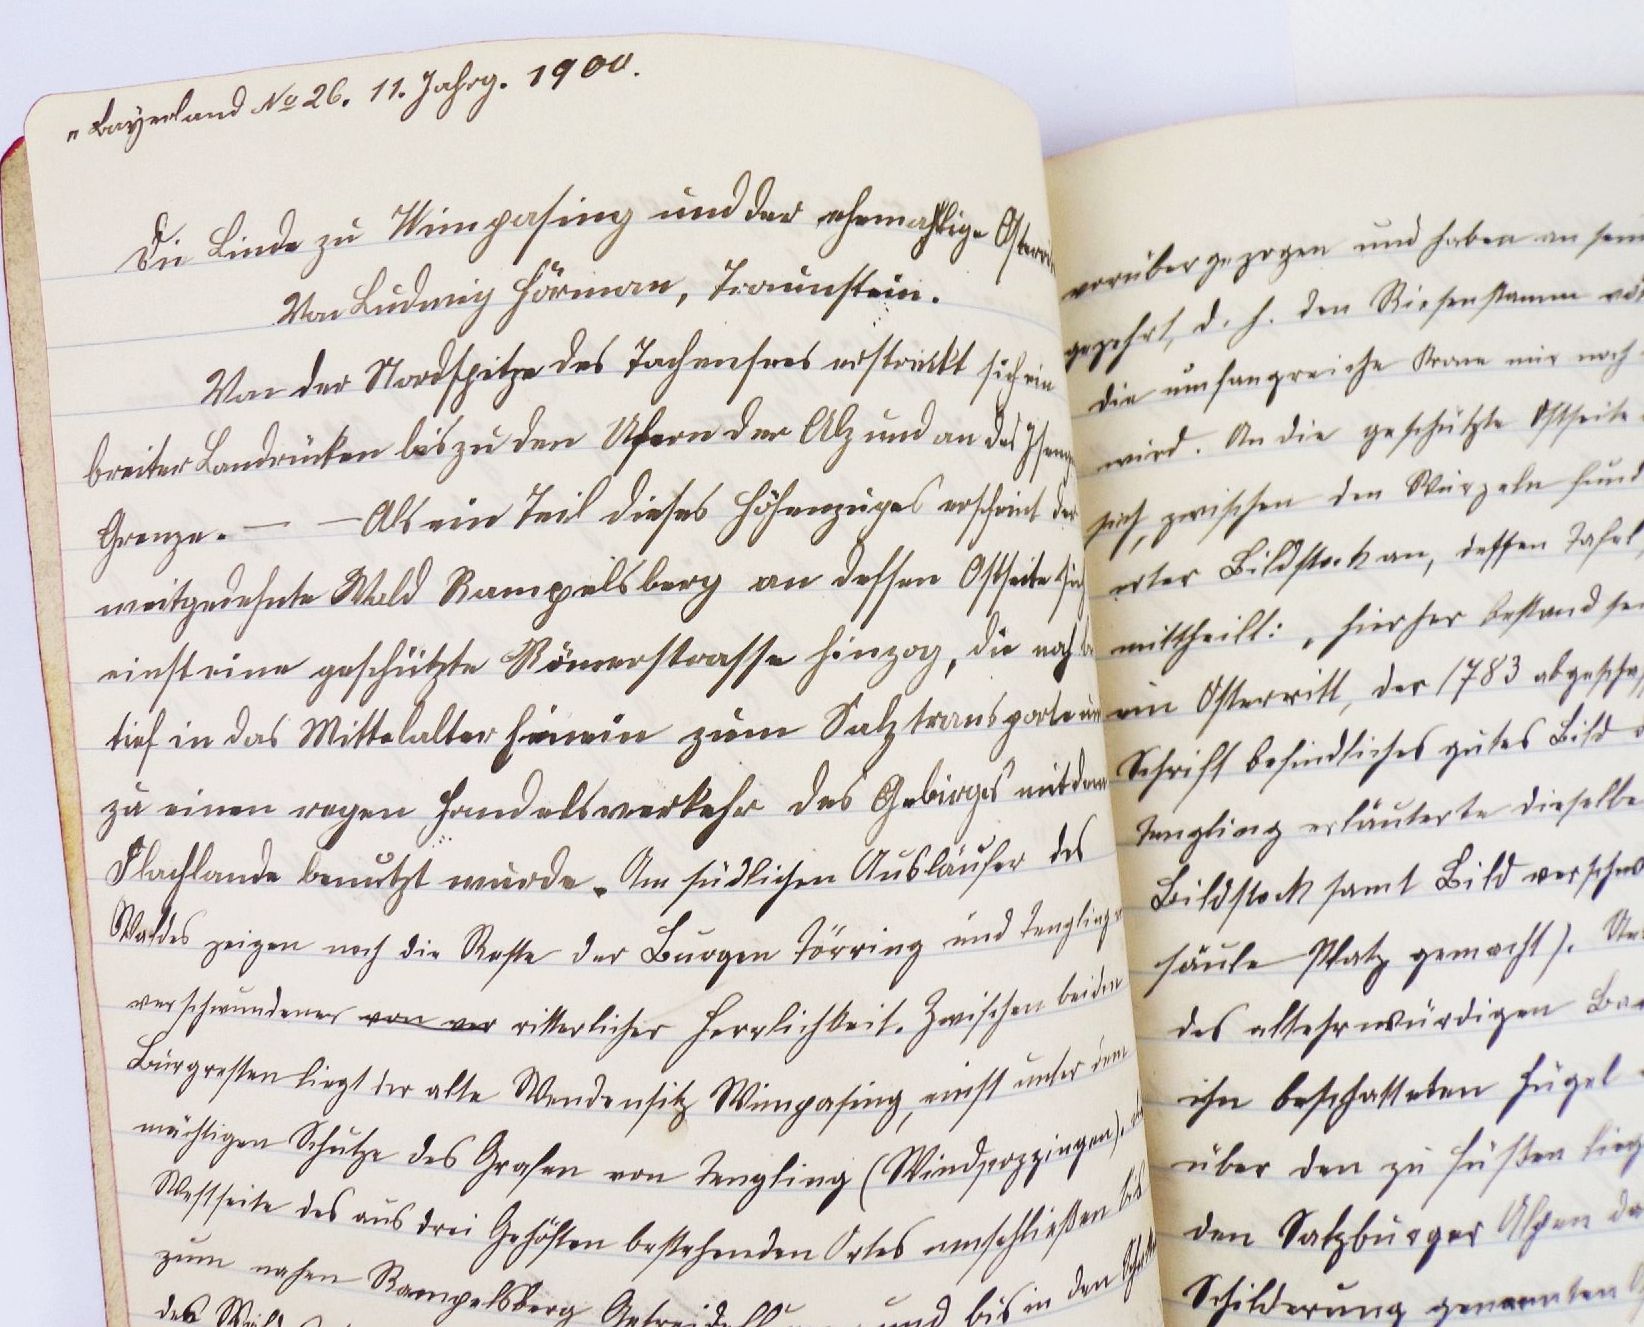 „Bayerland No 26. 11. Jahrg. 1900.
Die Linde zu Wimpasing und der ehemahlige Osterri
Von Ludwig Hörman, Traunstein.
Von der Nordspitze des Tachensees erstreckt sich ein
breiter Landrücken bis zu den Ufern der Alz und an des Isengau
Grenze. — — Als ein Teil dieses Höhenzuges erscheint der
weitgedehnte Wald Rampelsberg an dessen Ostseite sich
einst eine geschützte Römerstrasse hinzog, die noch
tief in das Mittelalter hinein zum Salztransporte und
zu einen regen Handelsverkehr des Gebirges mit dem
Flachlande benutzt wurde. Am südlichen Ausläufer des
Waldes zeigen noch die Reste der Burgen Törring und Tengling
verschwundener von ver ritterlicher Herrlichkeit. Zwischen beiden
Burgresten liegt der alte Wendensitz Wimpasing, einst unter dem
mächtigen Schutze des Grafen von Tengling (Windpozzingen).
Westseite des aus drei Gehöften bestehenden Ortes umschließen
zum nahen Rampelsberg und bis in den
des
vorüber gezogen und haben an sein
gezehrt, d. h. den Riesenstamm
die umfangreiche Krone nur noch
wird. An die geschützte Ostseite
sich, zwischen den Wurzeln
Bildstock an, dessen Tafel
mittheilt: „hierher bestand
ein Osterritt, der 1783 abgescha
Schrift befindliches gutes Bild
Tengling erläuterte dieselbe
Bildstock samt Bild verschw
säule Platz gemacht).
des altehrwürdigen Ba
ihn beschatteten Hügel
über den zu Füßen lieg
den Salzburger Alpen da
Schilderung genannten